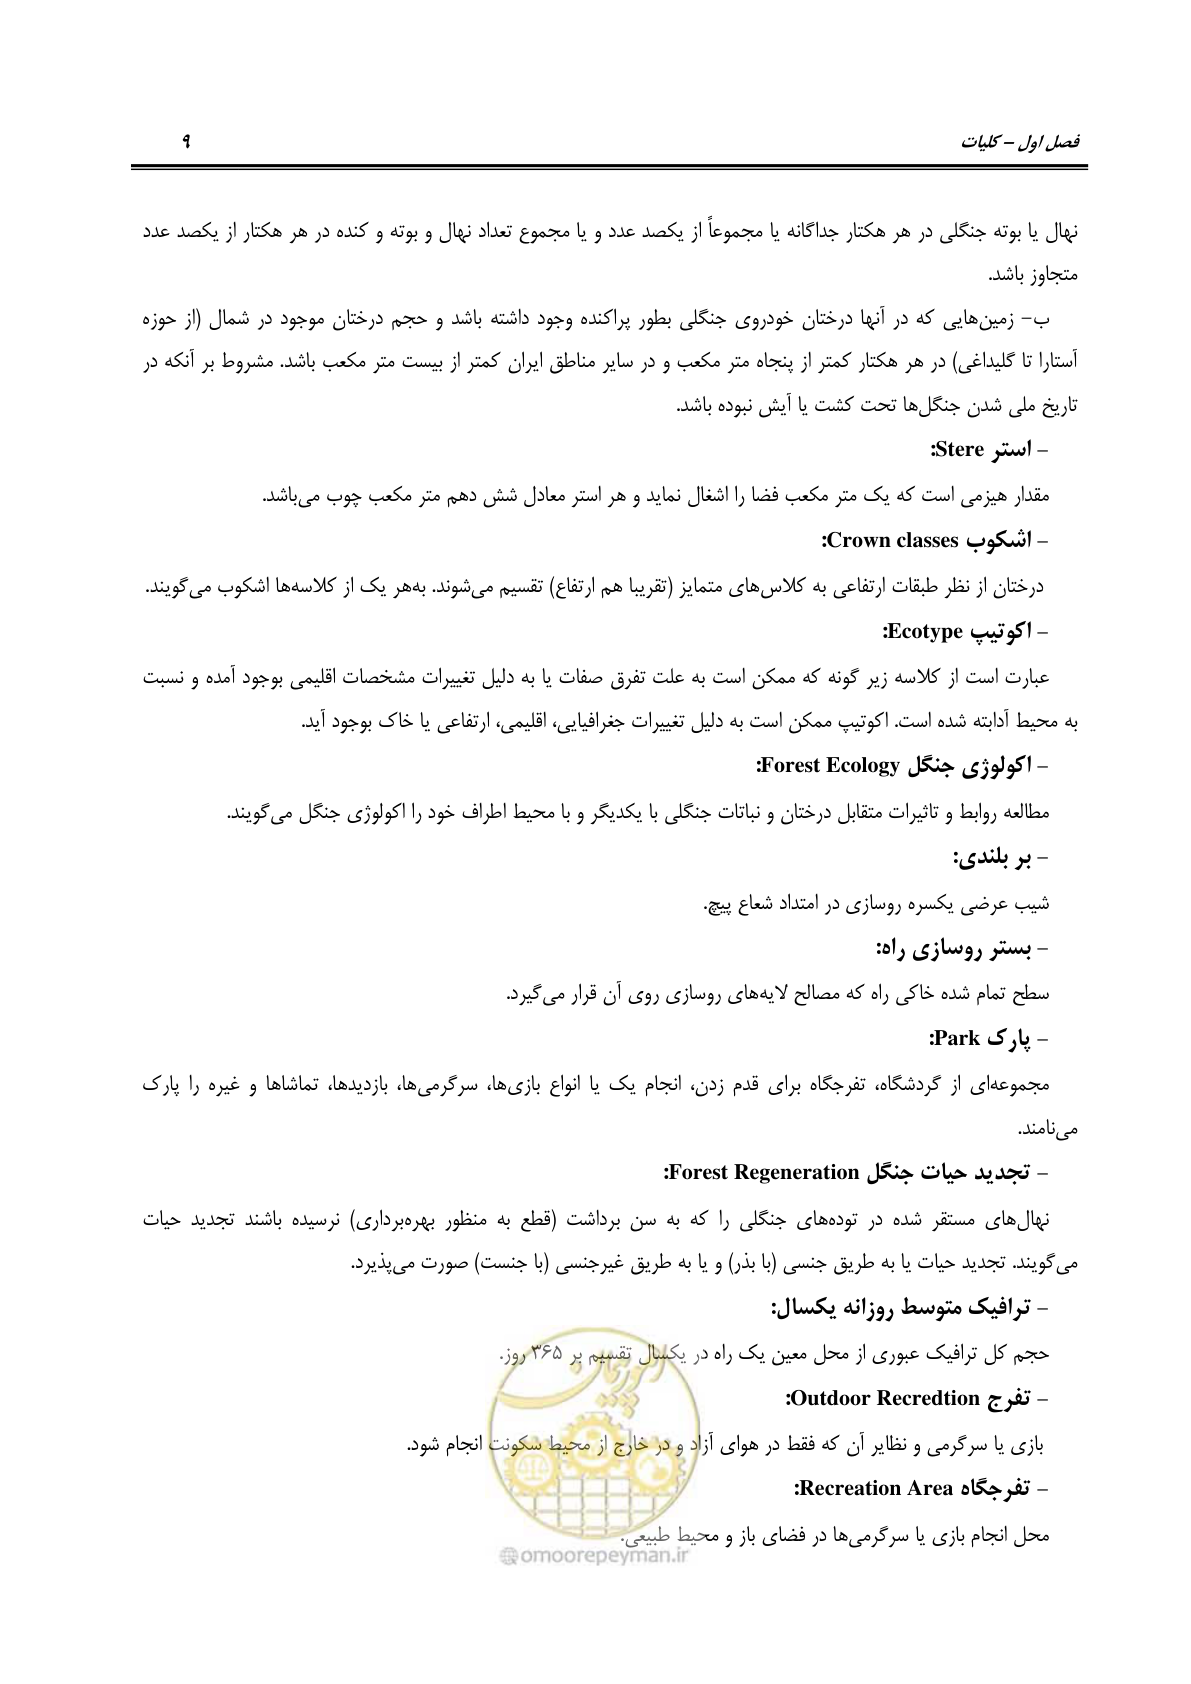 فصل اول – کلیات ۹
نهال یا بوته جنگلی در هر هکتار جداگانه یا مجموعاً از یکصد عدد و یا مجموع تعداد نهال و بوته و کنده در هر هکتار از یکصد عدد
متجاوز باشد.
ب- زمین‌هایی که در آنها درختان خودروی جنگلی بطور پراکنده وجود داشته باشد و حجم درختان موجود در شمال (از حوزه
آستارا تا گلیداغی) در هر هکتار کمتر از پنجاه متر مکعب و در سایر مناطق ایران کمتر از بیست متر مکعب باشد. مشروط بر آنکه در
تاریخ ملی شدن جنگل‌ها تحت کشت یا آیش نبوده باشد.
– استر Stere:
مقدار هیزمی است که یک متر مکعب فضا را اشغال نماید و هر استر معادل شش دهم متر مکعب چوب می‌باشد.
– اشکوب Crown classes:
درختان از نظر طبقات ارتفاعی به کلاس‌های متمایز (تقریبا هم ارتفاع) تقسیم می‌شوند. به‌هر یک از کلاسه‌ها اشکوب می‌گویند.
– اکوتیپ Ecotype:
عبارت است از کلاسه زیر گونه که ممکن است به علت تفرق صفات یا به دلیل تغییرات مشخصات اقلیمی بوجود آمده و نسبت
به محیط آدابته شده است. اکوتیپ ممکن است به دلیل تغییرات جغرافیایی، اقلیمی، ارتفاعی یا خاک بوجود آید.
– اکولوژی جنگل Forest Ecology:
مطالعه روابط و تاثیرات متقابل درختان و نباتات جنگلی با یکدیگر و با محیط اطراف خود را اکولوژی جنگل می‌گویند.
– بر بلندی:
شیب عرضی یکسره روسازی در امتداد شعاع پیچ.
– بستر روسازی راه:
سطح تمام شده خاکی راه که مصالح لایه‌های روسازی روی آن قرار می‌گیرد.
– پارک Park:
مجموعه‌ای از گردشگاه، تفرجگاه برای قدم زدن، انجام یک یا انواع بازی‌ها، سرگرمی‌ها، بازدیدها، تماشاها و غیره را پارک
می‌نامند.
– تجدید حیات جنگل Forest Regeneration:
نهال‌های مستقر شده در توده‌های جنگلی را که به سن برداشت (قطع به منظور بهره‌برداری) نرسیده باشند تجدید حیات
می‌گویند. تجدید حیات یا به طریق جنسی (با بذر) و یا به طریق غیرجنسی (با جنست) صورت می‌پذیرد.
– ترافیک متوسط روزانه یکسال:
حجم کل ترافیک عبوری از محل معین یک راه در یکسال تقسیم بر ۳۶۵ روز.
– تفرج Outdoor Recredtion:
بازی یا سرگرمی و نظایر آن که فقط در هوای آزاد و در خارج از محیط سکونت انجام شود.
– تفرجگاه Recreation Area:
محل انجام بازی یا سرگرمی‌ها در فضای باز و محیط طبیعی.
امور پیمان
omoorepeyman.ir